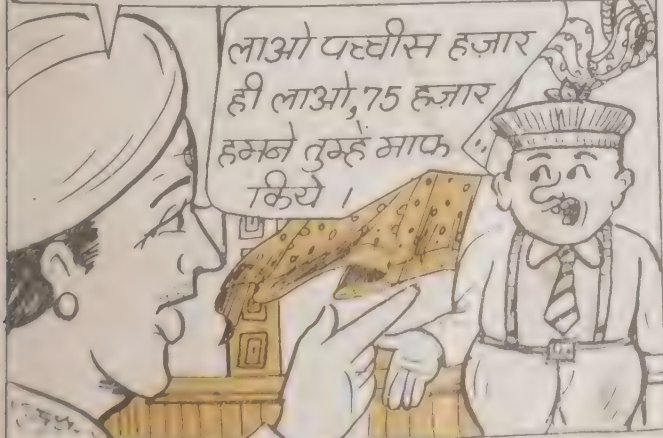 लाओ पच्चीस हज़ार
ही लाओ, 75 हज़ार
हमने तुम्हें माफ
किये ।